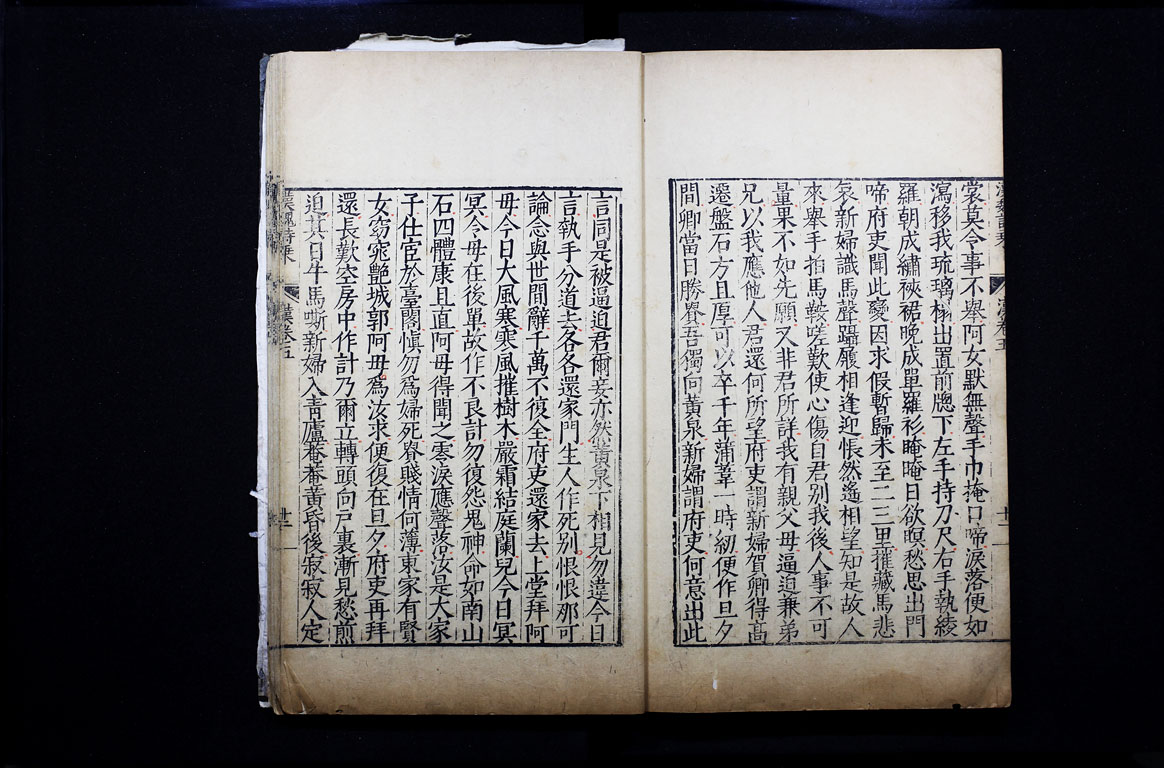 裳莫令事不舉阿女默無聲手巾掩口啼淚落便如
瀉移我琉璃榻出置前牕下左手持刀尺右手執綾
羅朝成繡裌裙晚成單羅衫晻晻日欲暝愁思出門
啼府吏聞此變因求假暫歸未至二三里摧藏馬悲
哀新婦識馬聲躡履相逢迎悵然遙相望知是故人
來舉手拍馬鞍嗟歎使心傷自君別我後人事不可
量果不如先願又非君所詳我有親父母逼迫兼弟
兄以我應他人君還何所望府吏謂新婦賀卿得高
遷盤石方且厚可以卒千年蒲葦一時紉便作旦夕
間卿當日勝貴吾獨向黃泉新婦謂府吏何意出此
言同是被逼迫君爾妾亦然黃泉下相見勿違今日
言執手分道去各各還家門生人作死別恨恨那可
論念與世間辭千萬不復全府吏還家去上堂拜阿
母今日大風寒寒風摧樹木嚴霜結庭蘭兒今日冥
冥令母在後單故作不良計勿復怨鬼神命如南山
石四體康且直阿母得聞之零淚應聲落汝是大家
子仕宦於臺閣慎勿爲婦死貴賤情何薄東家有賢
女窈窕艷城郭阿母爲汝求便復在旦夕府吏再拜
還長歎空房中作計乃爾立轉頭向戶裏漸見愁煎
迫其日牛馬嘶新婦入青廬菴菴黃昏後寂寂人定
漢魏詩乘 漢卷五